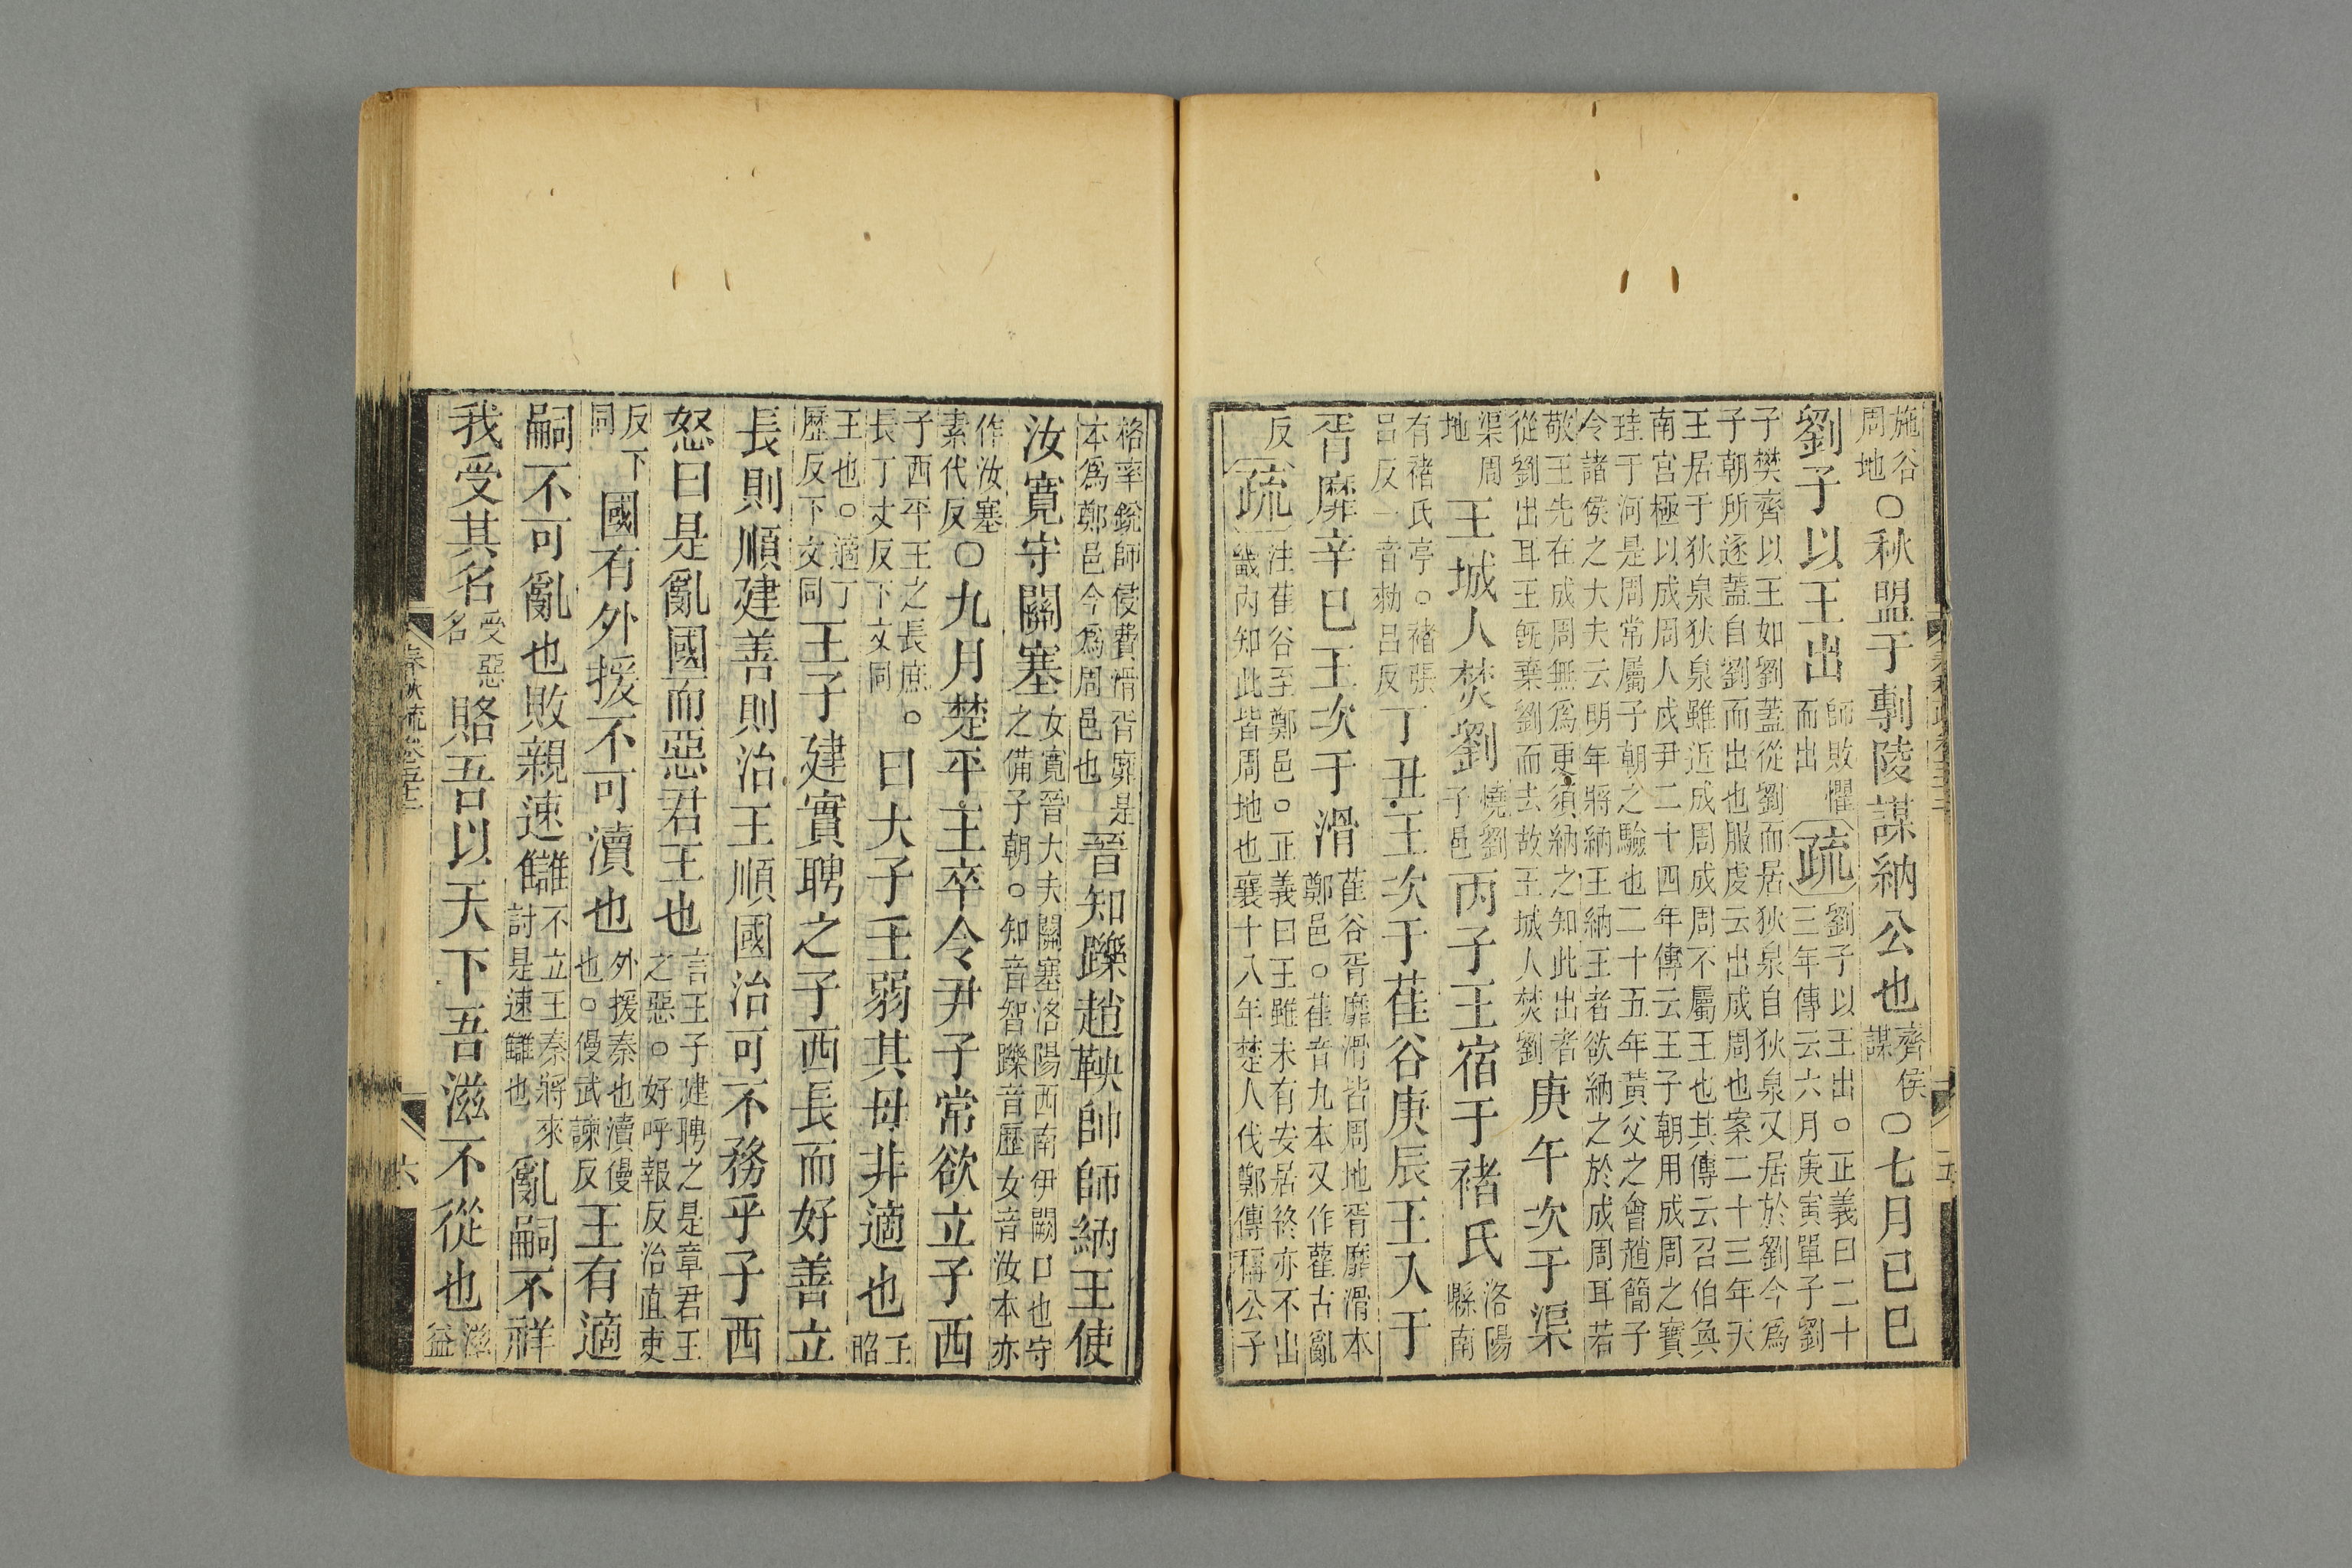 施谷
周地
○秋盟于剸陵謀納公也
齊侯
謀
○七月己巳
劉子以王出
師敗懼
而出
疏
劉子以王出○正義曰二十
三年傳云六月庚寅單子劉
子樊齊以王如劉蓋從劉而居狄泉自狄泉又居於劉今爲
子朝所逐蓋自劉而出也服虔云出成周也案二十三年天
王居于狄泉狄泉雖近成周成周不屬王也其傳云召伯奐
南宮極以成周人戍尹二十四年傳云王子朝用成周之寶
珪于河是周常屬子朝之驗也二十五年黃父之會趙簡子
令諸侯之大夫云明年將納王納王者欲納之於成周耳若
敬王先在成周無爲更須納之知此出者
從劉出耳王旣棄劉而去故王城人焚劉
庚午次于渠
渠周
地
王城人焚劉
燒劉
子邑
丙子王宿于褚氏
洛陽
縣南
有褚氏亭○褚張
呂反一音勑呂反
丁丑王次于萑谷庚辰王入于
胥靡辛巳王次于滑
萑谷胥靡滑皆周地胥靡滑本
鄭邑○萑音九本又作雚古亂
反
疏
注萑谷至鄭邑○正義曰王雖未有安居終亦不出
畿內知此皆周地也襄十八年楚人伐鄭傳稱公子
五
格率銳師侵費滑胥靡是
本爲鄭邑今爲周邑也
晉知躒趙鞅帥師納王使
汝寬守關塞
女寬晉大夫關塞洛陽西南伊闕口也守
之備子朝○知音智躒音歷女音汝本亦
作汝塞
素代反
○九月楚平王卒令尹子常欲立子西
子西平王之長庶○
長丁丈反下文同
曰大子壬弱其母非適也
壬
昭
王也○適丁
歷反下文同
王子建實聘之子西長而好善立
長則順建善則治王順國治可不務乎子西
怒曰是亂國而惡君王也
言王子建聘之是章君王
之惡○好呼報反治直吏
反下
同
國有外援不可瀆也
外援秦也瀆慢
也○慢武諫反
王有適
嗣不可亂也敗親速讎
不立王秦將來
討是速讎也
亂嗣不祥
我受其名
受惡
名
賂吾以天下吾滋不從也
滋
益
春秋疏卷五十二
六